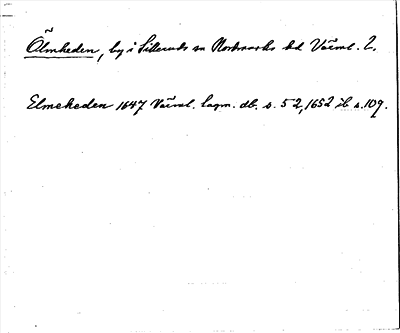 Ölmheden, by i Silleruds sn Nordmarks hd Värml. L.
Elmeheden 1647 Värml. Lagm. db. s. 52, 1652 ib s. 109.